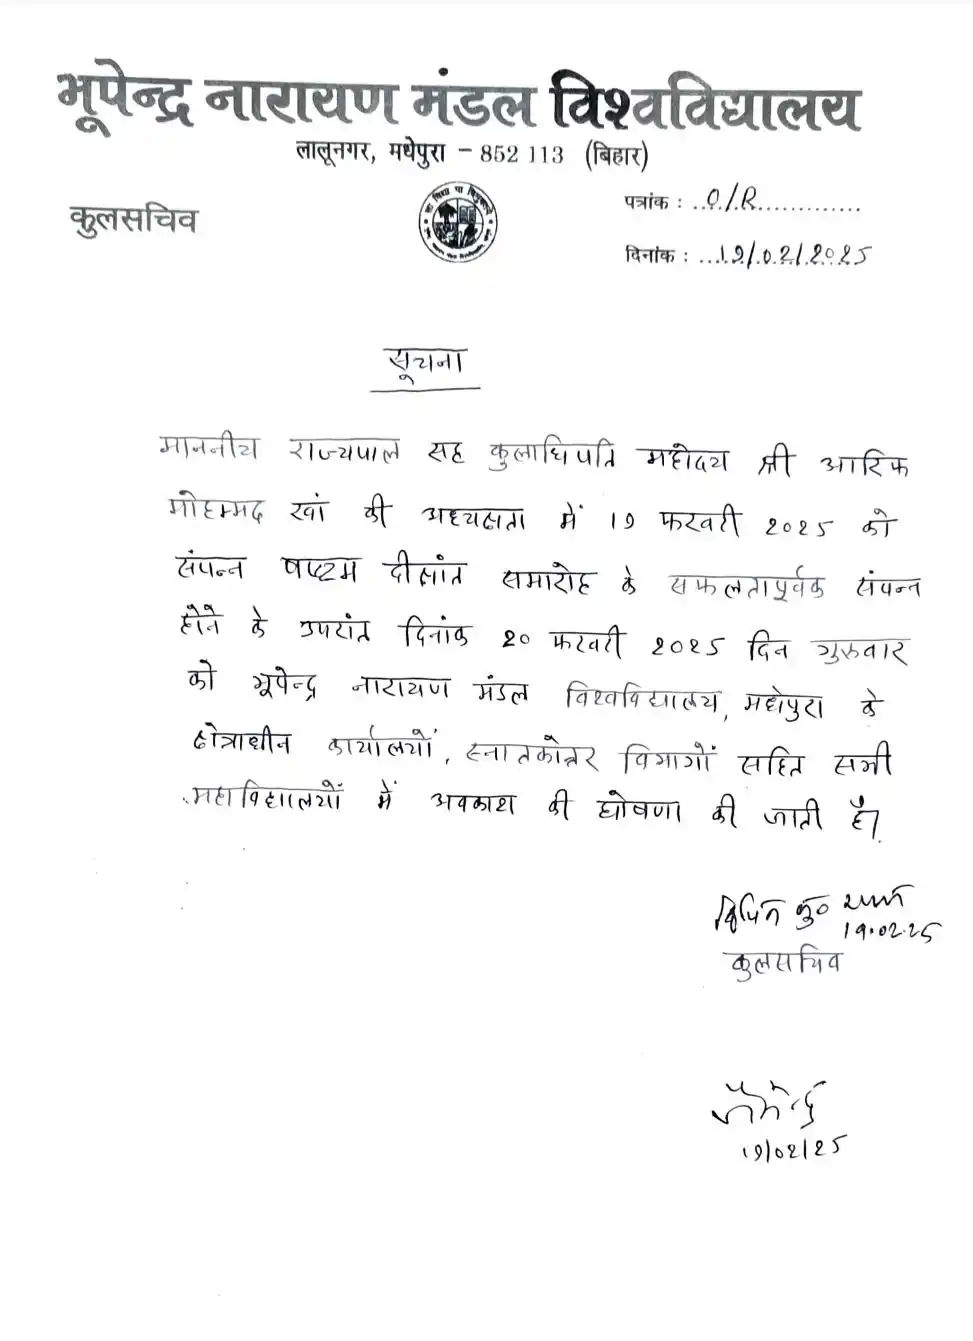 भूपेन्द्र नारायण मंडल विश्वविद्यालय
लालूनगर, मधेपुरा - 852 113 (बिहार)
कुलसचिव
पत्रांक : ..O/R.............
दिनांक : ...19/02/2025
सूचना
माननीय राज्यपाल सह कुलाधिपति महोदय श्री आरिफ
मोहम्मद खां की अध्यक्षता में 19 फरवरी 2025 को
संपन्न षष्टम दीक्षांत समारोह के सफलतापूर्वक संपन्न
होने के उपरांत दिनांक 20 फरवरी 2025 दिन गुरूवार
को भूपेन्द्र नारायण मंडल विश्वविद्यालय, मधेपुरा के
क्षेत्राधीन कार्यालयों, स्नातकोत्तर विभागों सहित सभी
महाविद्यालयों में अवकाश की घोषणा की जाती है।
बिपिन कु०
19.02.25
कुलसचिव
19/02/25